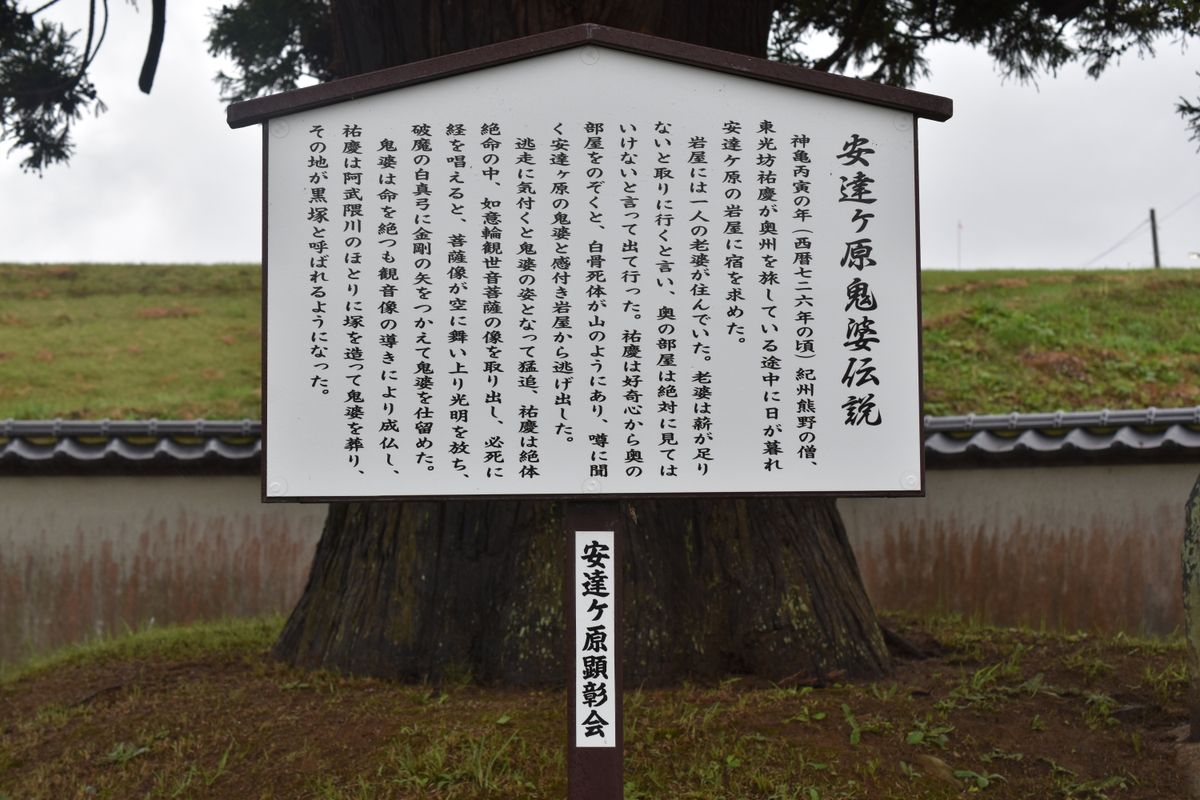 安達ケ原鬼婆伝説
神亀丙寅の年（西暦七二六年の頃）紀州熊野の僧、
東光坊祐慶が奥州を旅している途中に日が暮れ
安達ケ原の岩屋に宿を求めた。
岩屋には一人の老婆が住んでいた。老婆は薪が足り
ないと取りに行くと言い、奥の部屋は絶対に見ては
いけないと言って出て行った。祐慶は好奇心から奥の
部屋をのぞくと、白骨死体が山のようにあり、噂に聞
く安達ヶ原の鬼婆と感付き岩屋から逃げ出した。
逃走に気付くと鬼婆の姿となって猛追、祐慶は絶体
絶命の中、如意輪観世音菩薩の像を取り出し、必死に
経を唱えると、菩薩像が空に舞い上り光明を放ち、
破魔の白真弓に金剛の矢をつかえて鬼婆を仕留めた。
鬼婆は命を絶つも観音像の導きにより成仏し、
祐慶は阿武隈川のほとりに塚を造って鬼婆を葬り、
その地が黒塚と呼ばれるようになった。
安達ケ原顕彰会